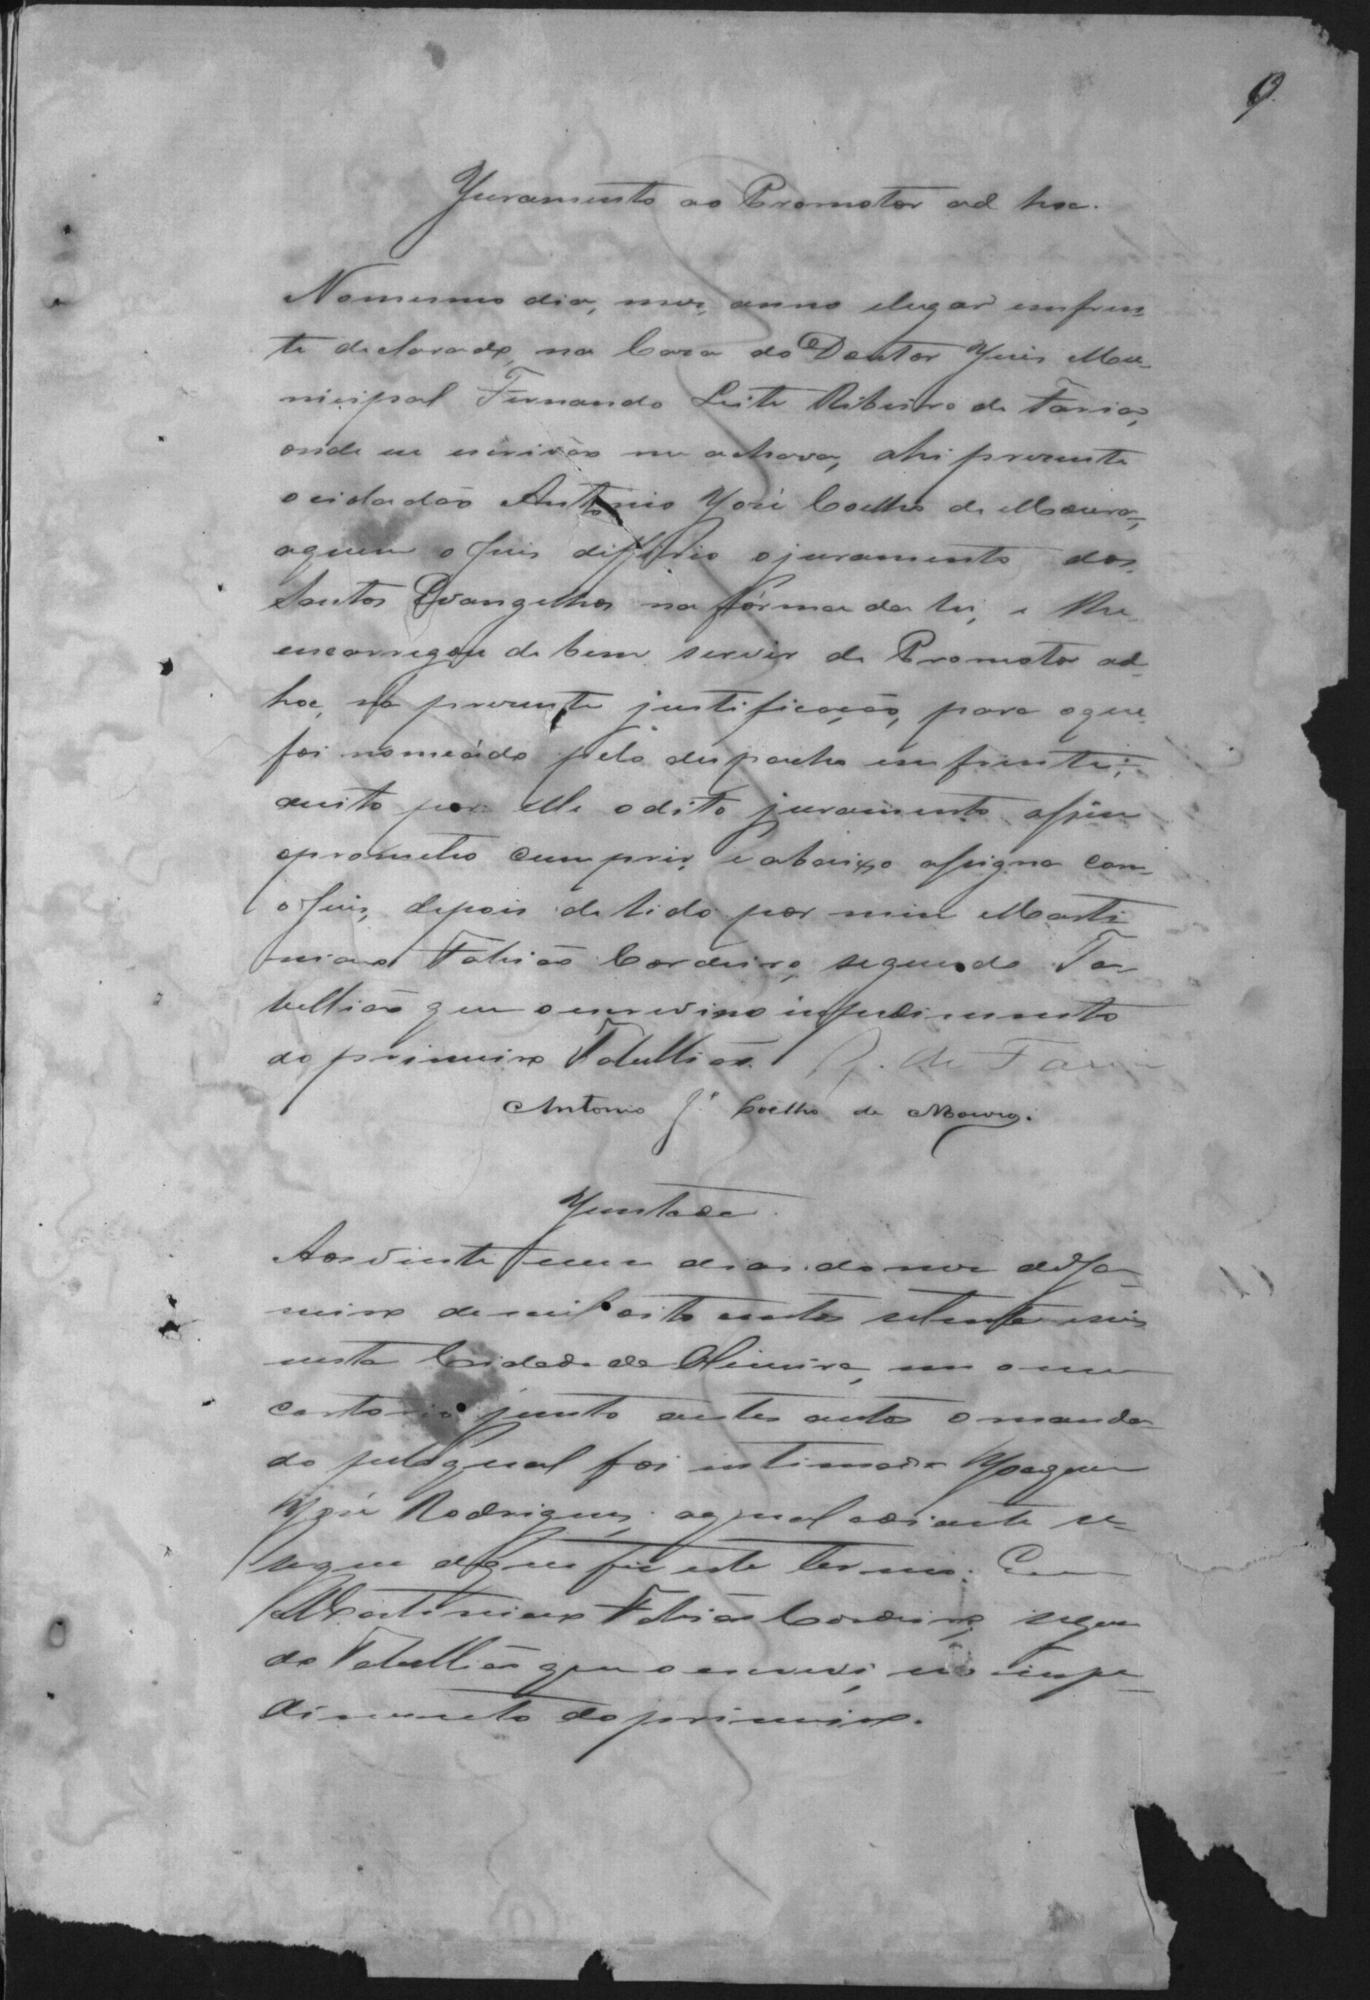 9
Juramento ao Promotor ad hoc.
Nomesmo dia, mez, anno elugar emfren-
te declarado, na Caza do Doutor Juis Mu-
nicipal Fernando Leite Ribeiro de Faria,
onde eu escrivão me achava, ahi presente
ocidadão Antonio José Coelho de Moura,
aquem o Juis difirio ojuramento dos
Santos Evangelhos na fórma da lei, e lhe
encarregou de bem servir de Promotor ad
hoc, na presente justificação, para oque
foi nomeádo pelo despacho emfrente;
aceito por elle odito juramento assim
oprometeo cumprir, e abaixo assigna com
oJuis, depois de lido por mim Marti
niano Fabião Cordeiro, segundo Ta-
bellião que oescrevi no impedimento
do primeiro Tabellião. R. de Faria
Antonio J.e Coelho de Moura.
Juntada.
Aosvinte eum dias do mez de Ja-
neiro de mil oito centos setenta eseis
nesta Cidade de Oliveira, em o meu
cartorio junto aestes autos o manda-
do pelo qual foi intimado Joaquim
José Rodrigues, oqual adiante se-
segue doque fiz este termo. Eu
Martiniano Fabião Cordeiro, segun
do Tabellião que o escrevi, no impe-
dimento do primeiro.